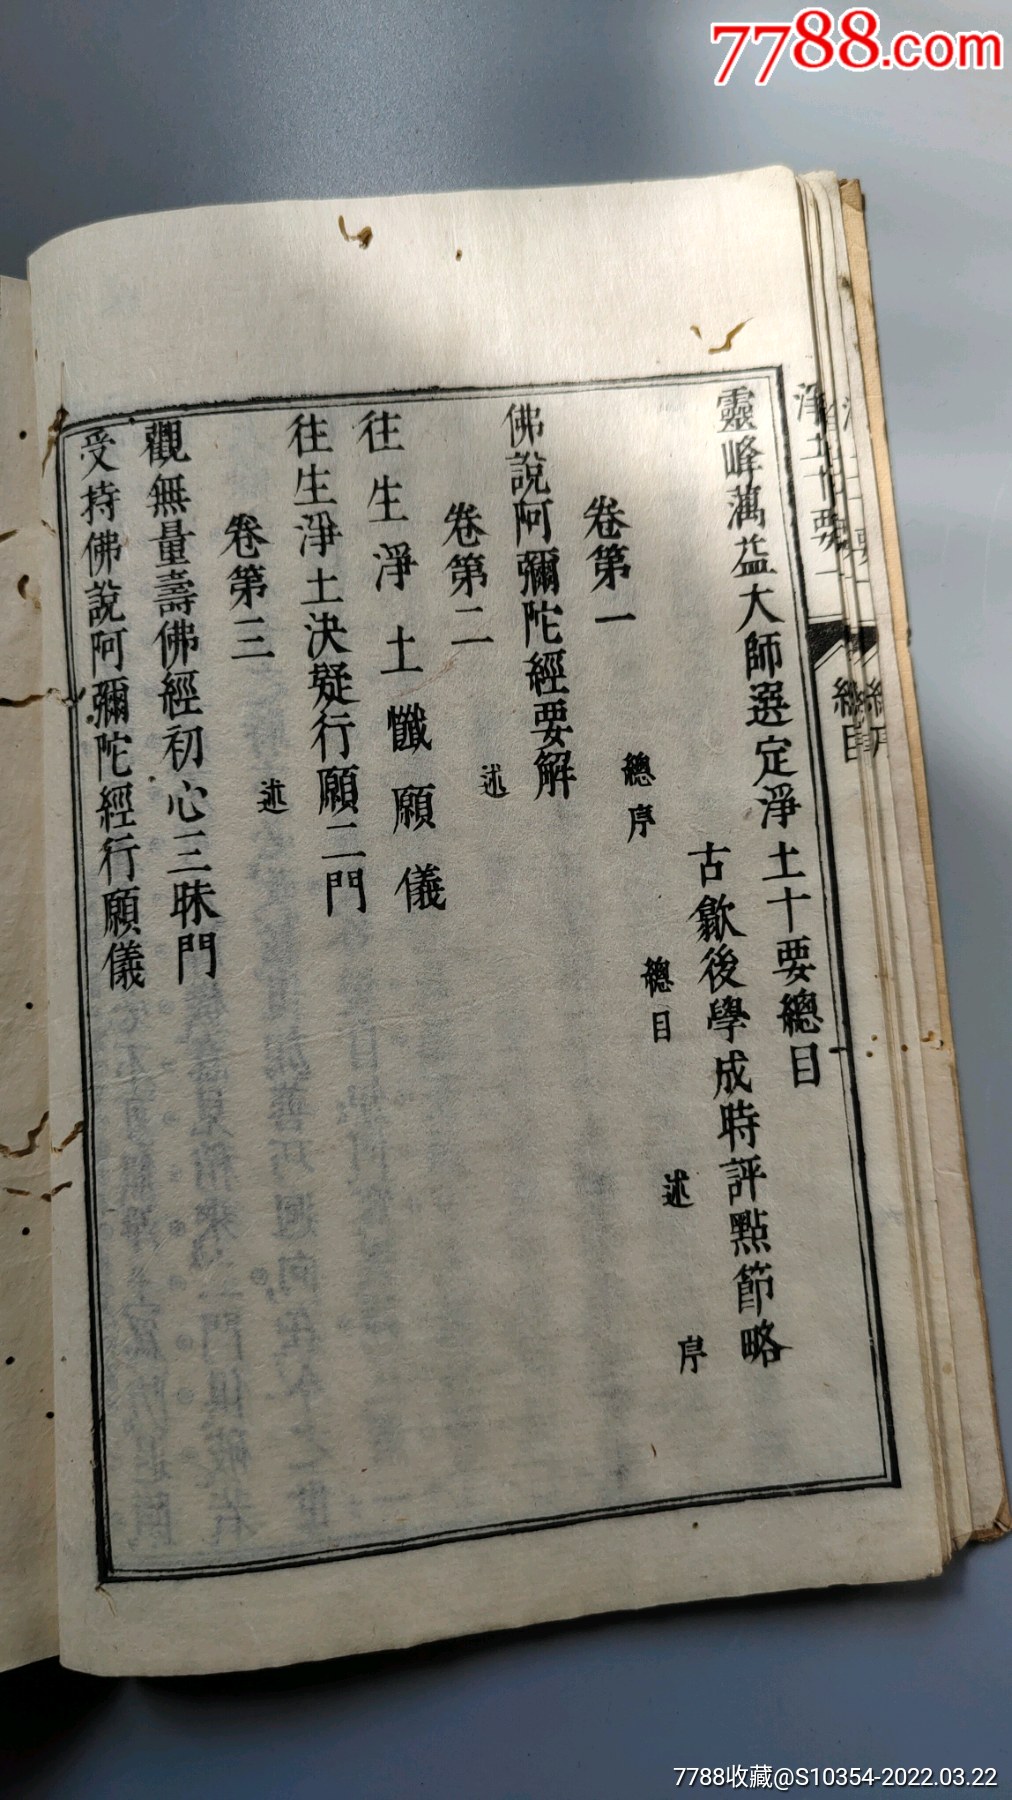 7788.com
靈峰蕅益大師選定淨土十要總目
古歙後學成時評點節略
卷第一 總序 總目 述 序
佛說阿彌陀經要解
卷第二 述
往生淨土懺願儀
往生淨土決疑行願二門
卷第三 述
觀無量壽佛經初心三昧門
受持佛說阿彌陀經行願儀
淨土十要一
總目
7788收藏@S10354-2022.03.22